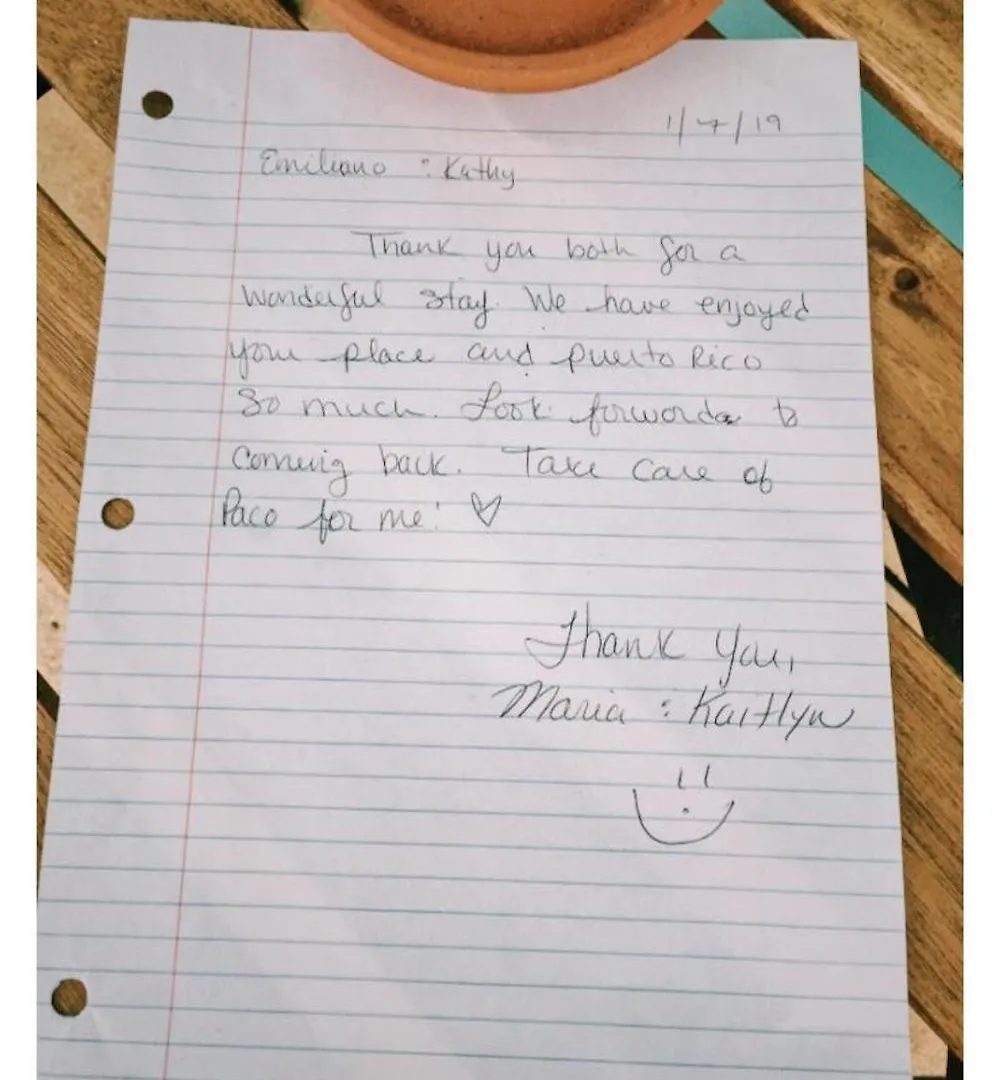 1/7/19
Emiliano : Kathy
Thank you both for a
wonderful stay. We have enjoyed
your place and puerto Rico
so much. Look forwarda to
coming back. Take care of
Paco for me! ♡
Thank you,
Maria : Kaitlyn